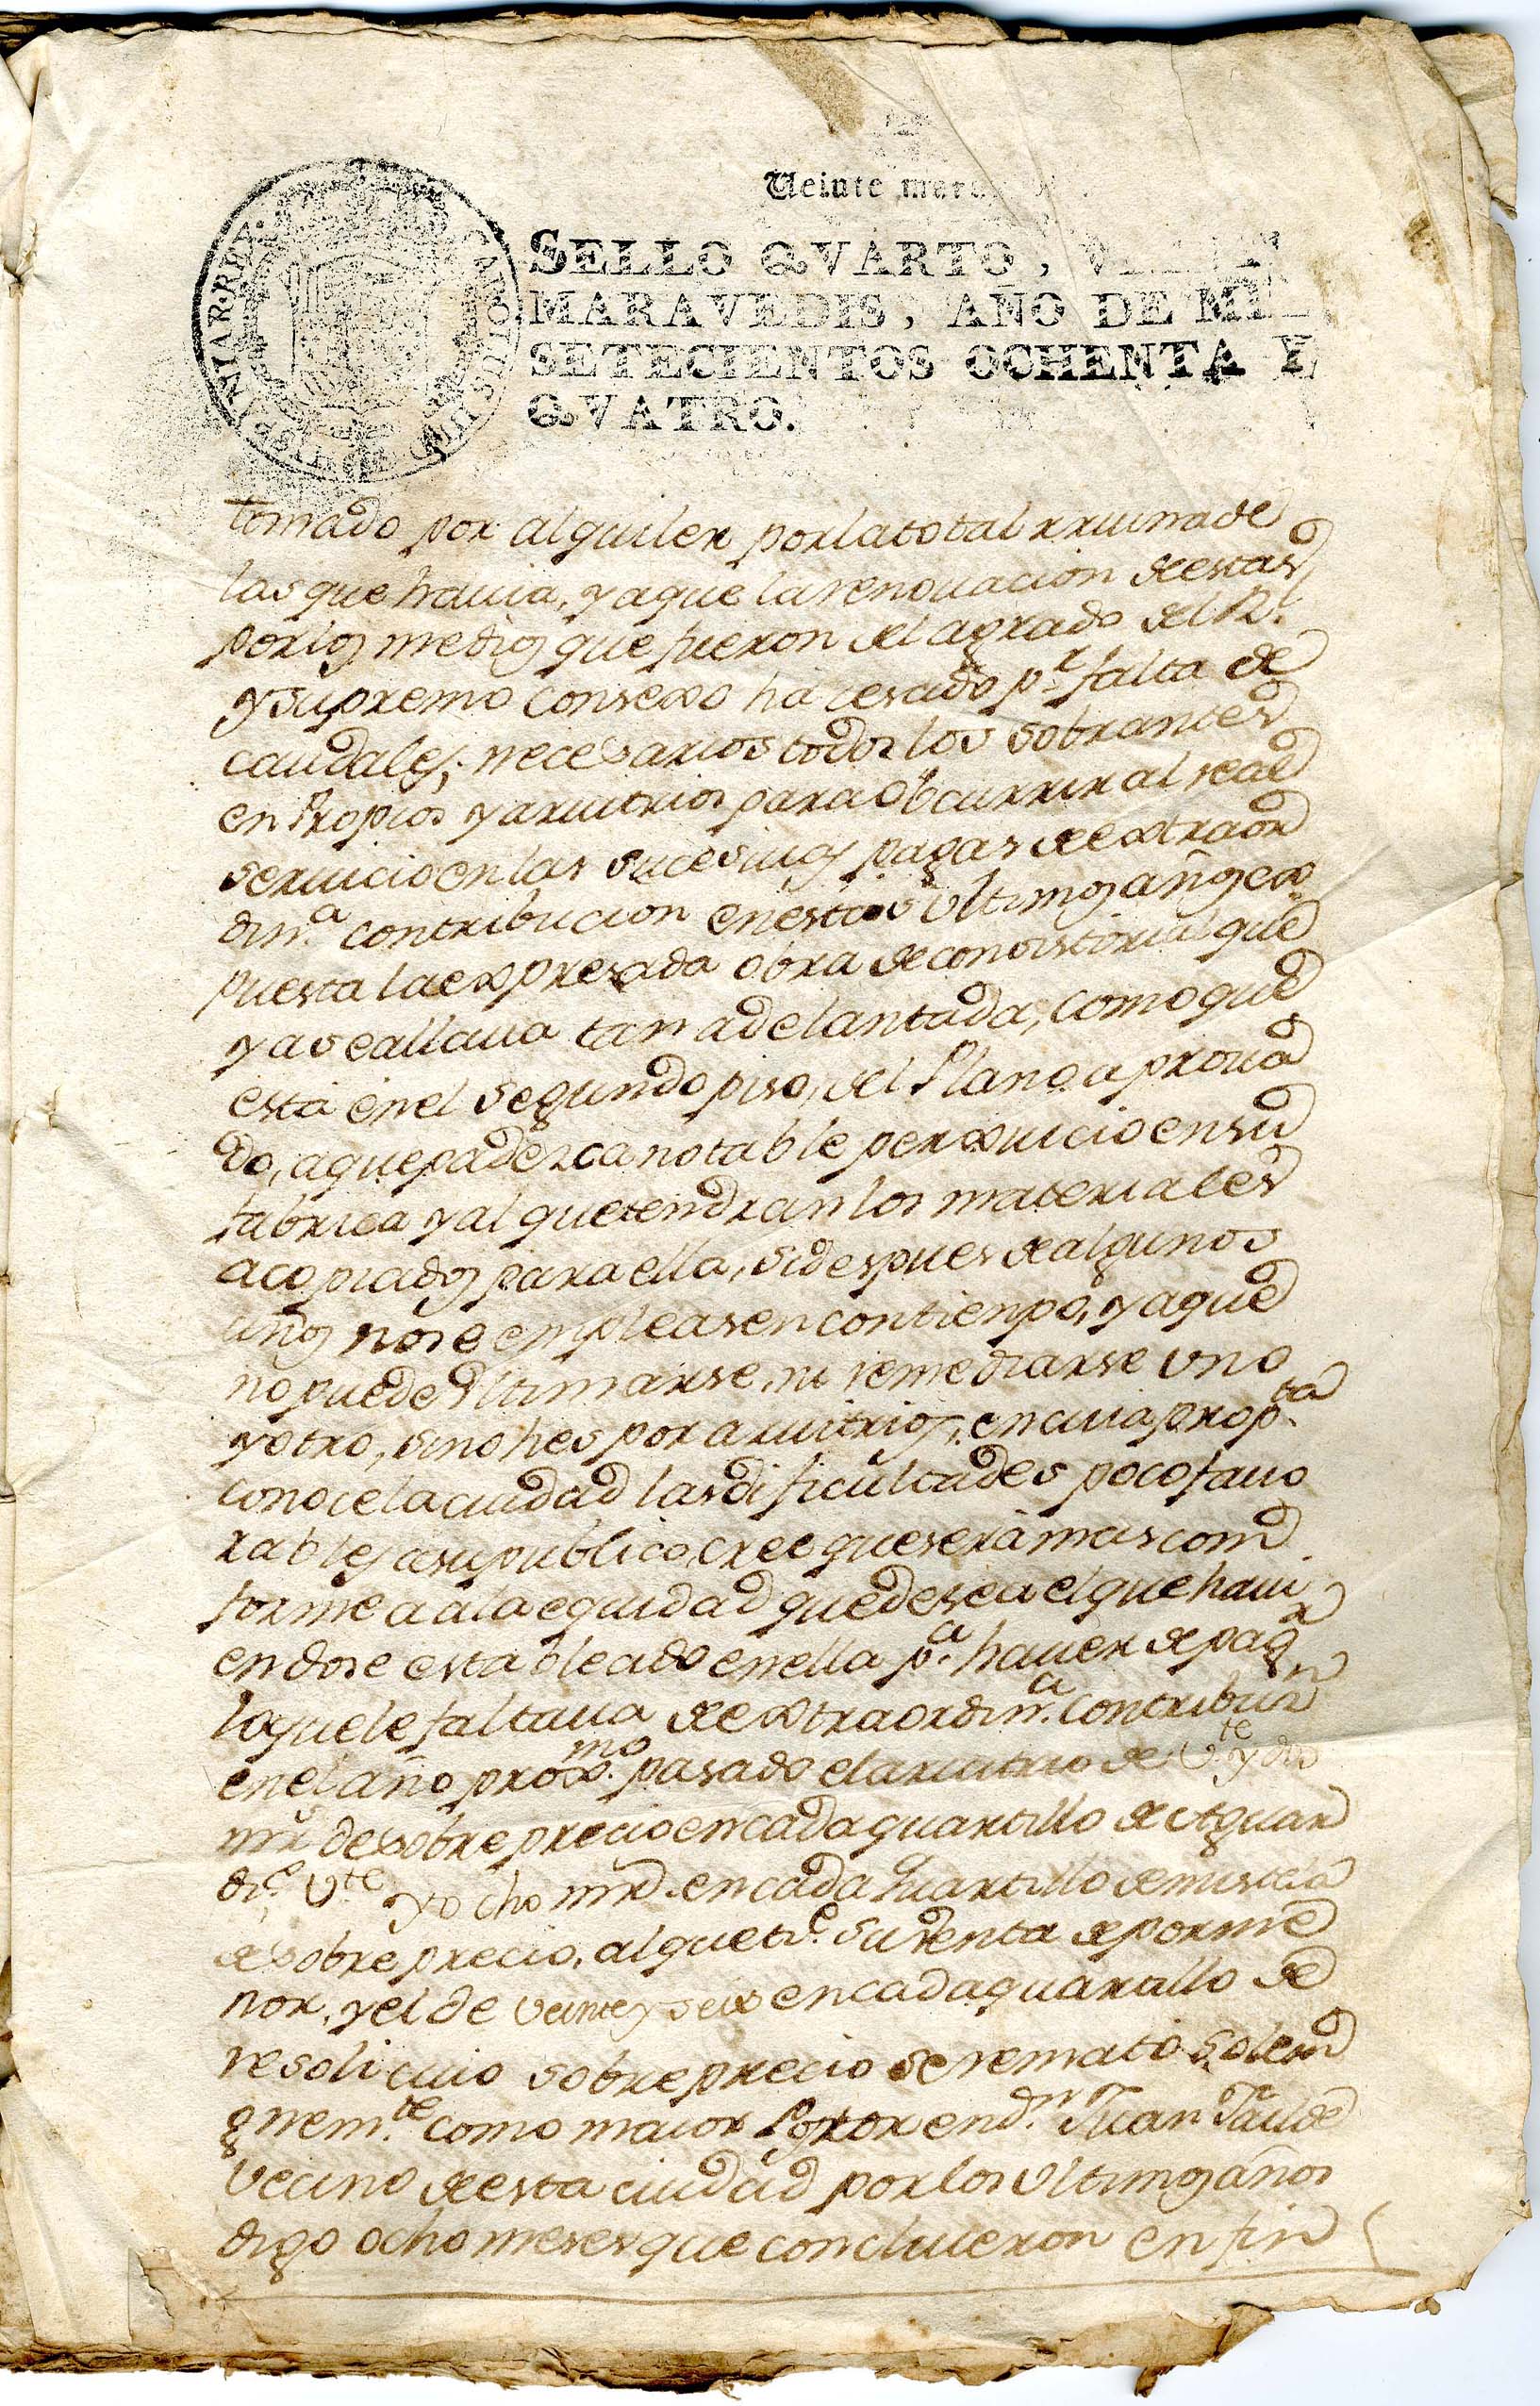 Veinte mara
SELLO QVARTO, VEINTE
MARAVEDIS, AÑO DE MIL
SETECIENTOS OCHENTA Y
QVATRO.
HISPANIAR. REX.
tomado por alquiler por la total rruina de
las que hauia, y a que la renouacion de estas
por los medios que fueron del agrado del Rl.
y supremo Consexo ha cesado pr. falta de
caudales; necesarios todos los sobrantes
en Propios y aruitrios para obcurrir al real
seruicio en las sucesiuas pagas de extraor
dina. contribucion en estos vltimos años ex
puesta la expresada obra de consistorial que
ya se allaua tan adelantada, como que
està en el segundo piso, del Plano aproua
do, a que padezca notable perxuicio en su
fabrica y al que tendran los materiales
acopiados para ella, si despues de algunos
años no se empleasen con tienpo, y a que
no puede vltimarse, ni remediarse vno
y otro, sino hes por aruitrios, en cuia propta.
conoce la ciudad las dificultades poco fauo
rables a su publico, cree que serà mas com
forme a a la equidad que desea el que haui
endose establecido en ella pa. hauer de pagr
lo que le faltaua de extraordina. contribun
en el año proxmo. pasado el aruitrio de vte. y dos
mrs de sobre precio en cada quartillo de Aguar
dte. vte. y ocho mrs en cada quartillo de mistela
de sobre precio, al que tve. su venta de por me
nor, y el de veinte y seis en cada quartillo de
resoli cuio sobre precio se rematò solem
gnemte. como maior Postor en dn. Juan
vecino de esta ciudad por los vltimos años
digo ocho meses que concluieron en fin